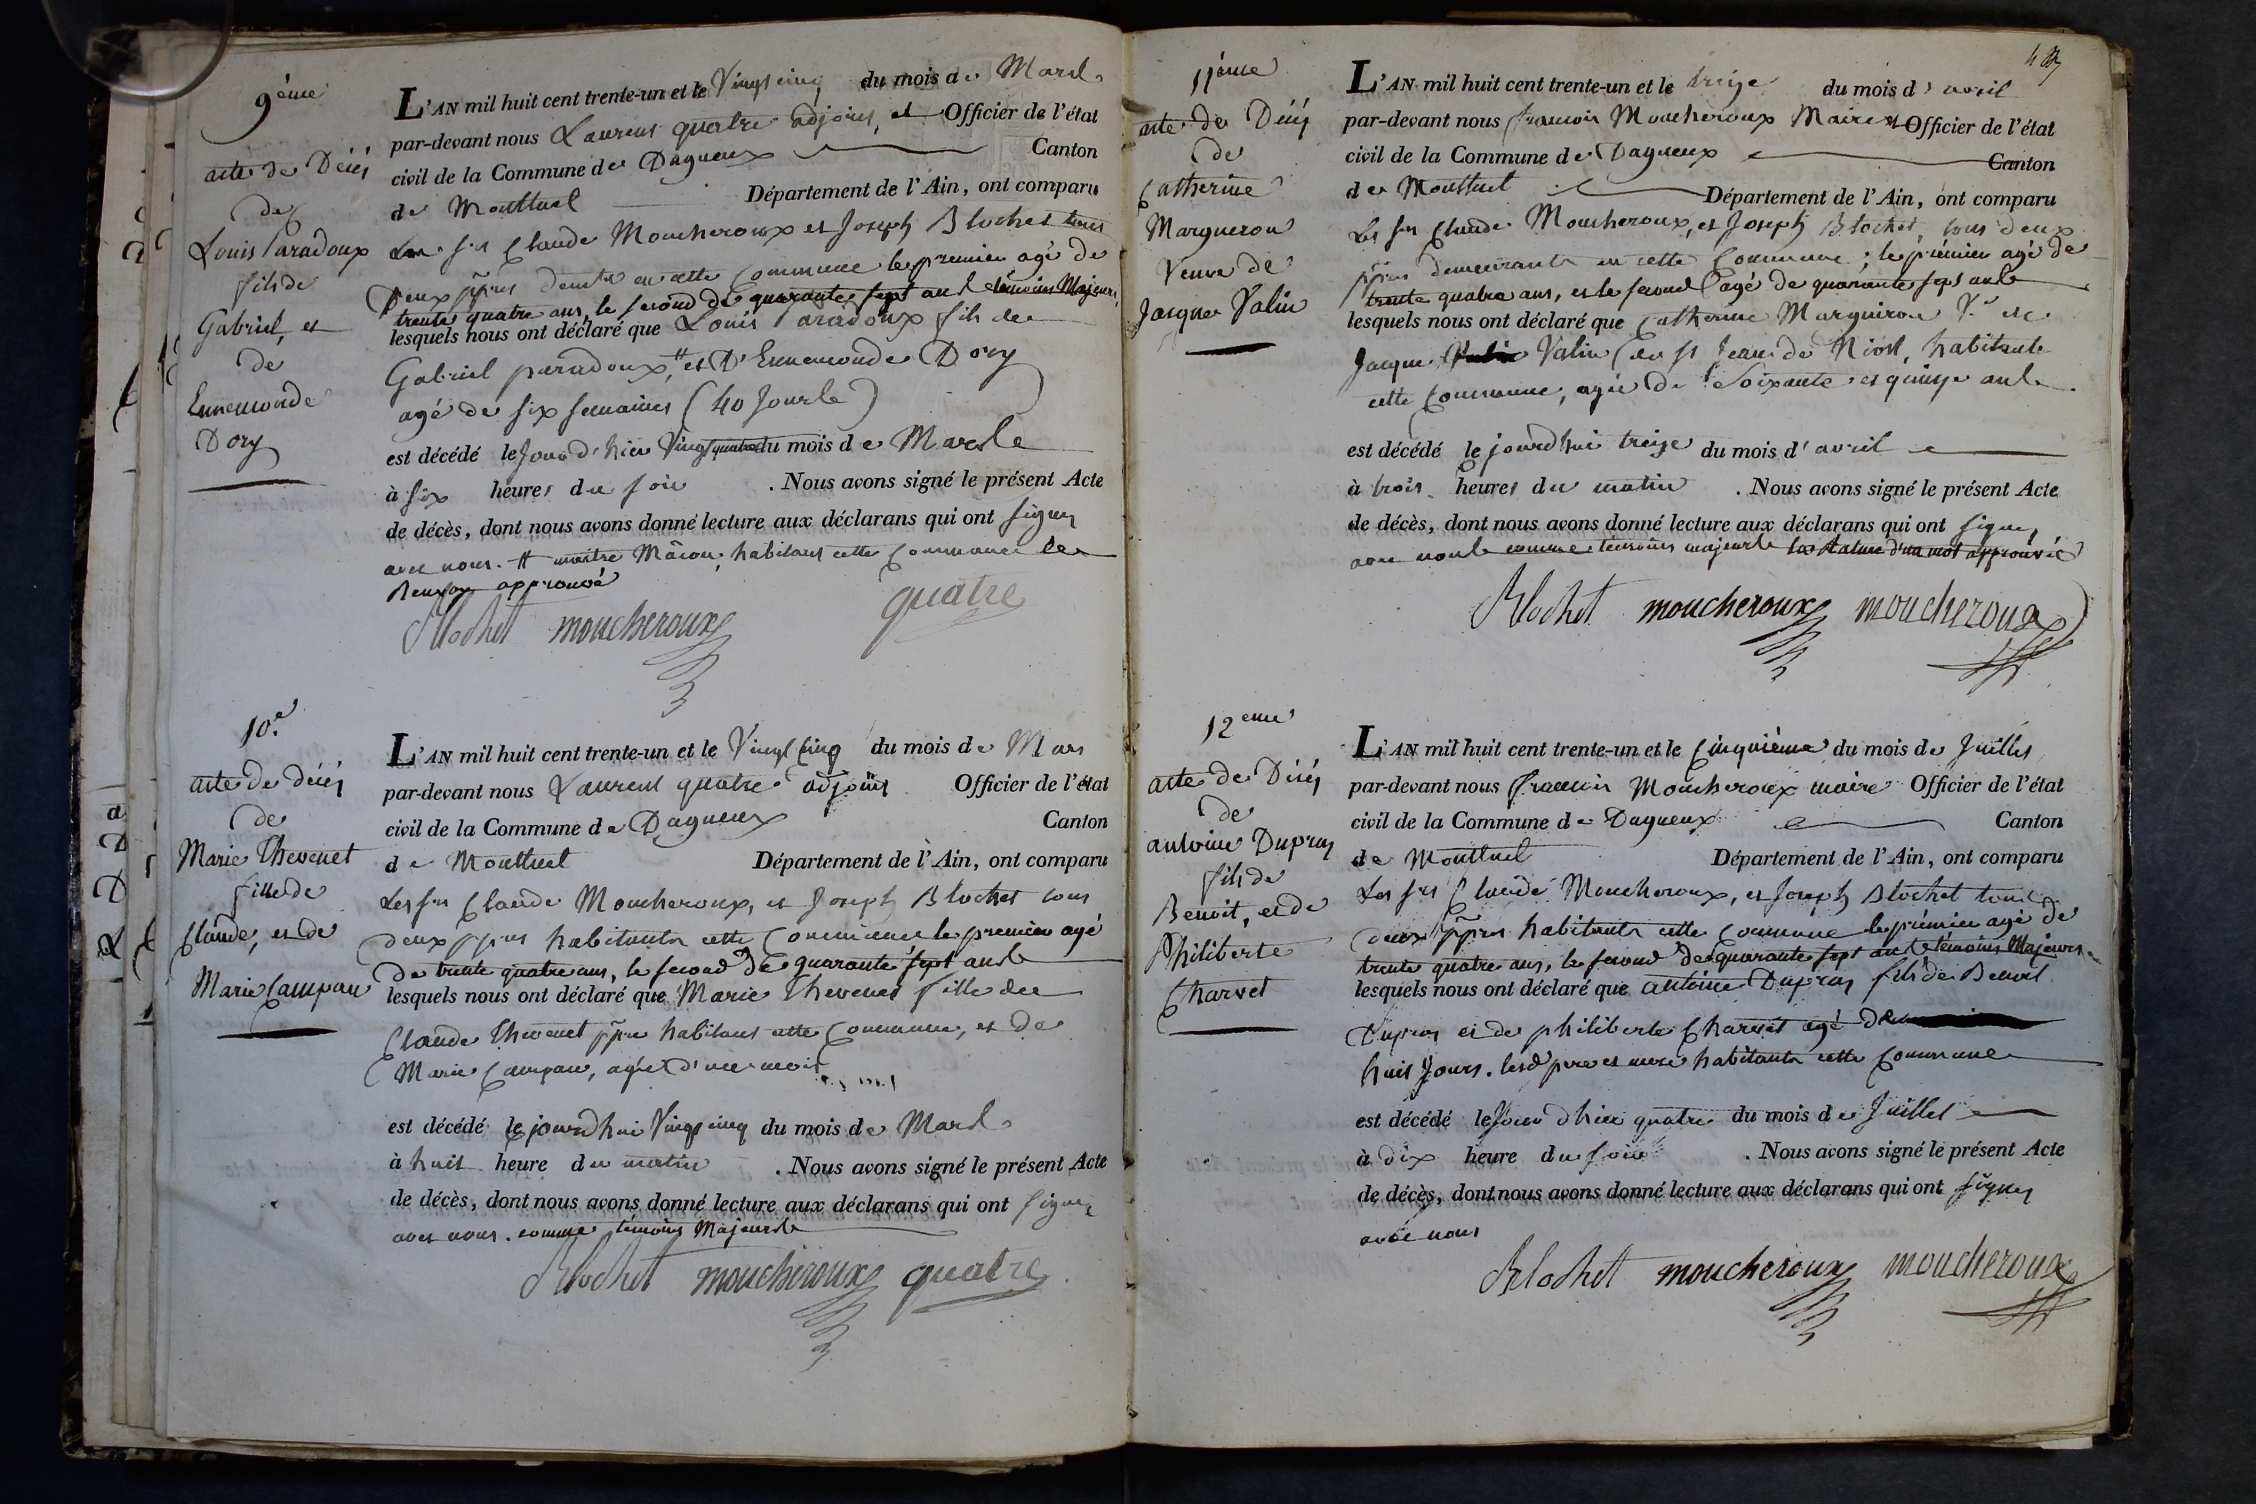 9ème
acte de Décés
de
Louis Paradoux
fils de
Gabriel, et
de
Ennemonde
Dory
L'AN mil huit cent trente-un et le Vingt cinq du mois de Mars
par-devant nous Laurent quatre adjoint, et Officier de l'état
civil de la Commune de Dagneux Canton
de Montluel Département de l'Ain, ont comparu
Les srs Claude Moucheroux et Joseph Blochet tous
Deux ppres demts en cette Commune le premier agé de
trente quatre ans, le second de quarante sept ans témoins Majeurs,
lesquels nous ont déclaré que Louis Paradoux fils de
Gabriel paradoux, # et D'Ennemonde Dory
agé de six semaines (40 Jours)
est décédé le Jour d'hier Vingt quatre du mois de Mars
à six heures du soir . Nous avons signé le présent Acte
de décès, dont nous avons donné lecture aux déclarans qui ont signés
avec nous. # maitre Mâcon, habitant cette Commune le
Renvoy approuvé
Blochet moucheroux quatre
10.e
acte de décés
de
Marie Thevenet
fille de
Claude, et de
Marie Campan
L'AN mil huit cent trente-un et le Vingt Cinq du mois de Mars
par-devant nous Laurent quatre adjoint Officier de l'état
civil de la Commune de Dagneux Canton
de Montluel Département de l'Ain, ont comparu
Les srs Claude Moucheroux, et Joseph Blochet tous
deux ppres habitants cette Commune le premier agé
de trente quatre ans, le second de quarante sept ans
lesquels nous ont déclaré que Marie Thevenet fille de
Claude Thevenet ppre habitant cette Commune, et de
Marie Campan, agée d'un mois
est décédé le jourd'hui Vingt cinq du mois de Mars
à huit heure du matin . Nous avons signé le présent Acte
de décès, dont nous avons donné lecture aux déclarans qui ont signés
avec nous. comme témoins Majeurs
Blochet moucheroux quatre
11ème
acte de Décés
de
Catherine
Margueron
Veuve de
Jacque Valin
L'AN mil huit cent trente-un et le treize du mois d'avril
par-devant nous francois Moucheroux Maire et Officier de l'état
civil de la Commune de Dagneux Canton
de Montluel Département de l'Ain, ont comparu
Les srs Claude Moucheroux, et Joseph Blochet, tous deux
ppres demeurants en cette Commune; le prémier agé de
trente quatre ans, et le second agé de quarante sept ans
lesquels nous ont déclaré que Catherine Marguiron Ve de
Jacque Valin de St Jean de Niost, habitante
cette Commune, agée de Soixante et quinze ans
est décédé le jourd'hui treize du mois d'avril
à trois heures du matin . Nous avons signé le présent Acte
de décès, dont nous avons donné lecture aux déclarans qui ont signé,
avec nous comme témoins majeurs la Rature d'un mot approuvée
Blochet moucheroux moucheroux
12eme
acte de Décés
de
antoine Dupras
fils de
Benoit, et de
Philiberte
Charvet
L'AN mil huit cent trente-un et le Cinquième du mois de Juillet
par-devant nous francois Moucheroux maire Officier de l'état
civil de la Commune de Dagneux Canton
de Montluel Département de l'Ain, ont comparu
Les srs Claude Moucheroux, et Joseph Blochet tous
deux ppres habitants cette Commune le prémier agé de
trente quatre ans, le second de quarante sept ans témoins Majeurs
lesquels nous ont déclaré que antoine Dupras fils de Benoit
Dupras et de philiberte Charvet agé de
huit Jours. lesd pere et mere habitants cette Commune
est décédé le Jour d'hier quatre du mois de Juillet
à dix heure du soir . Nous avons signé le présent Acte
de décès, dont nous avons donné lecture aux déclarans qui ont signés
avec nous
Blochet moucheroux moucheroux